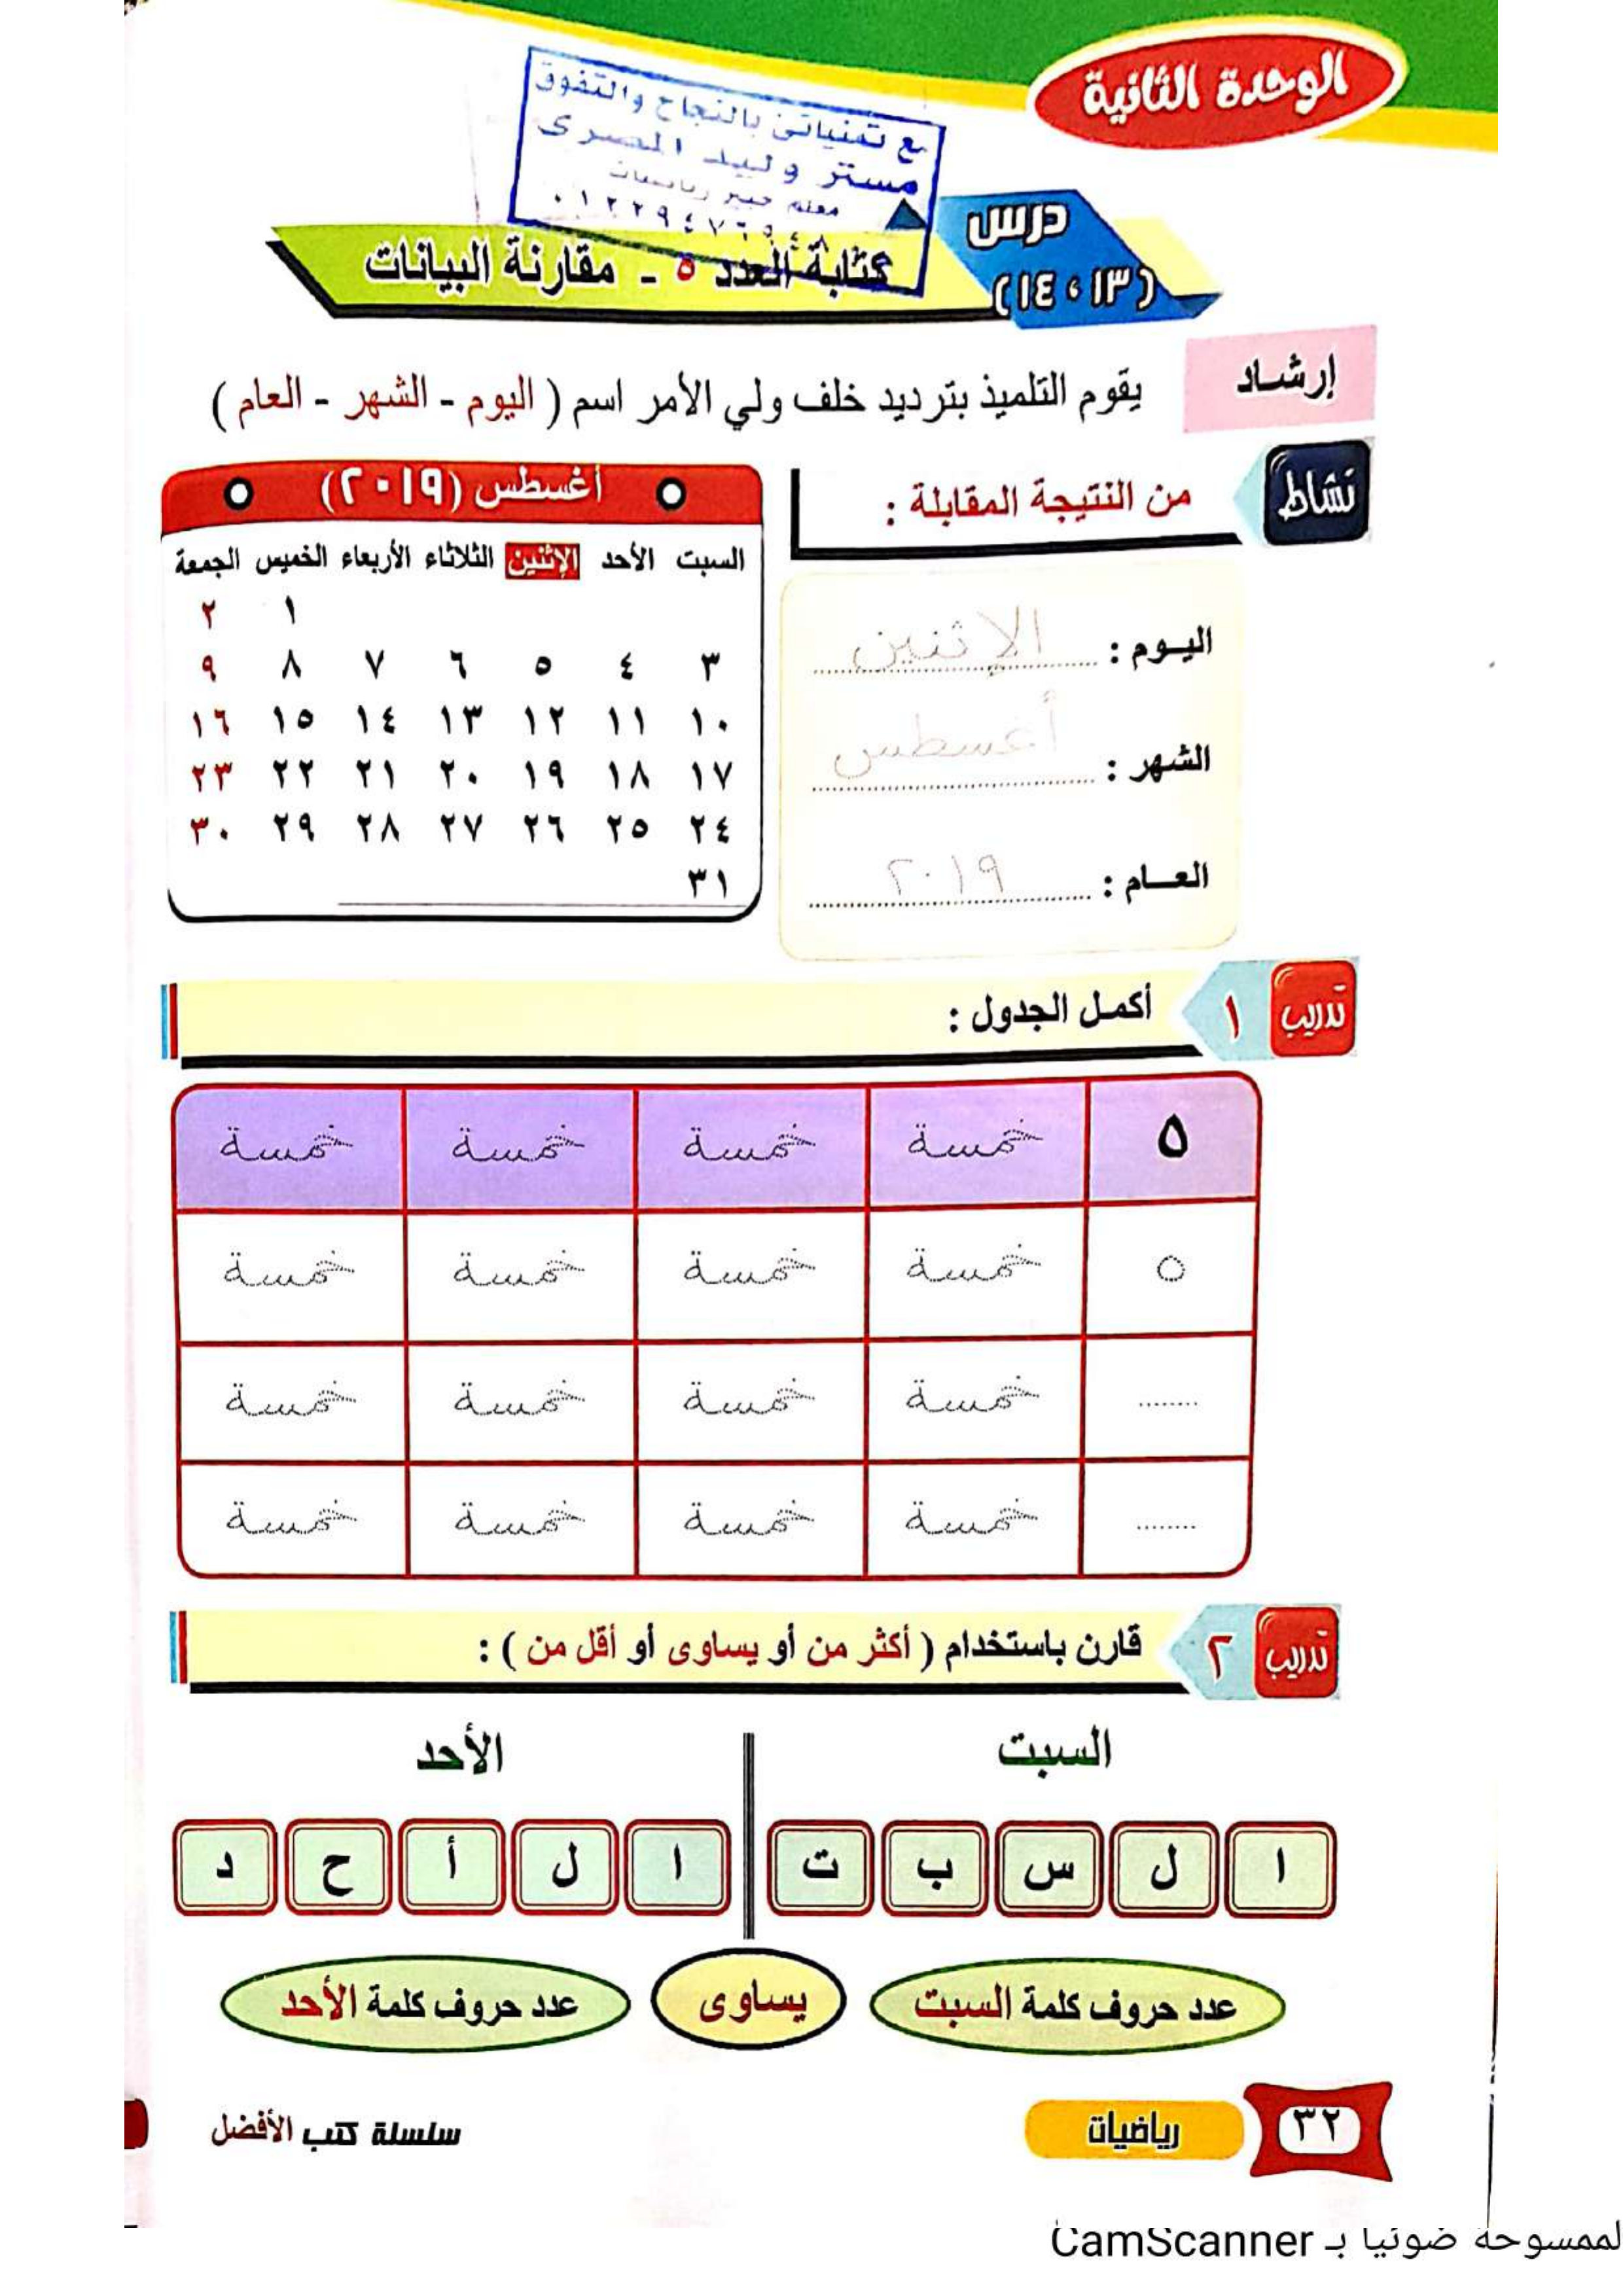 الوحدة الثانية
مع تمنياتى بالنجاح والتفوق
مستر وليد المصرى
معلم خبير رياضيات
درس
(١٣ ، ١٤)
كتابة العدد ٥ - مقارنة البيانات
إرشاد
يقوم التلميذ بترديد خلف ولي الأمر اسم ( اليوم - الشهر - العام )
نشاط
من النتيجة المقابلة :
اليوم : الإثنين
الشهر : أغسطس
العام : ٢٠١٩
أغسطس (٢٠١٩)
السبت الأحد الإثنين الثلاثاء الأربعاء الخميس الجمعة
١ ٢
٣ ٤ ٥ ٦ ٧ ٨ ٩
١٠ ١١ ١٢ ١٣ ١٤ ١٥ ١٦
١٧ ١٨ ١٩ ٢٠ ٢١ ٢٢ ٢٣
٢٤ ٢٥ ٢٦ ٢٧ ٢٨ ٢٩ ٣٠
٣١
تدريب ١ أكمل الجدول :
٥ خمسة خمسة خمسة خمسة
٥ خمسة خمسة خمسة خمسة
........ خمسة خمسة خمسة خمسة
........ خمسة خمسة خمسة خمسة
تدريب ٢ قارن باستخدام ( أكثر من أو يساوى أو أقل من ) :
السبت الأحد
ا ل س ب ت ا ل أ ح د
عدد حروف كلمة السبت يساوى عدد حروف كلمة الأحد
٣٢ رياضيات سلسلة كتب الأفضل
لممسوحة ضوئيا بـ CamScanner